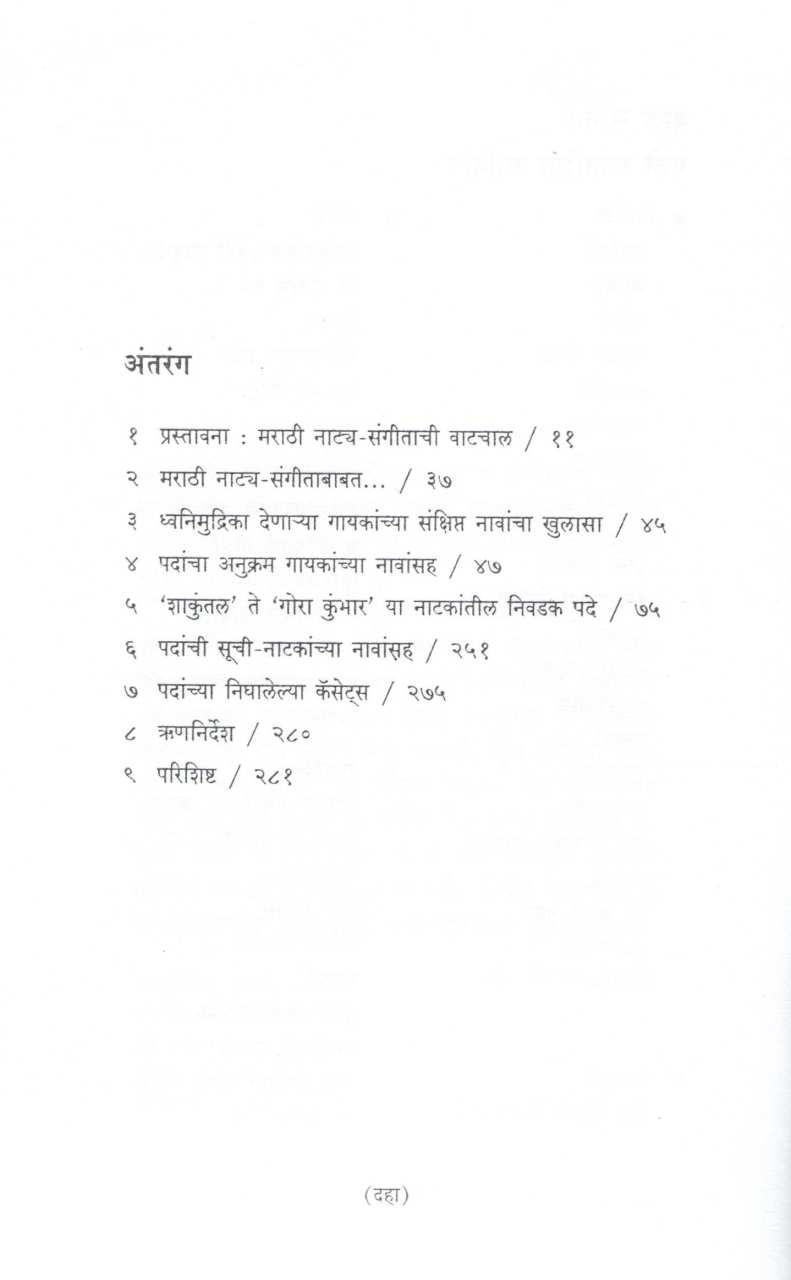 अंतरंग
१ प्रस्तावना : मराठी नाट्य-संगीताची वाटचाल / ११
२ मराठी नाट्य-संगीताबाबत... / ३७
३ ध्वनिमुद्रिका देणाऱ्या गायकांच्या संक्षिप्त नावांचा खुलासा / ४५
४ पदांचा अनुक्रम गायकांच्या नावांसह / ४७
५ ‘शाकुंतल’ ते ‘गोरा कुंभार’ या नाटकांतील निवडक पदे / ७५
६ पदांची सूची-नाटकांच्या नावांसह / २५१
७ पदांच्या निघालेल्या कॅसेट्स / २७५
८ ऋणनिर्देश / २८०
९ परिशिष्ट / २८१
(दहा)